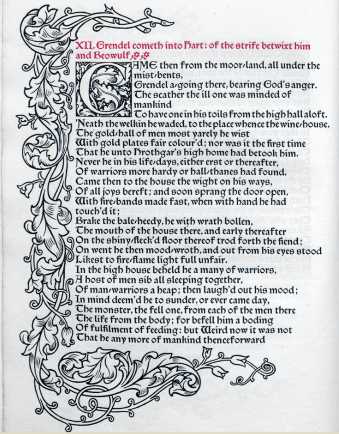 XII. Grendel cometh into Hart: of the strife betwixt him
and Beowulf
CAME then from the moor-land, all under the
mist-bents,
Grendel a-going there, bearing God's anger.
The scather the ill one was minded of
mankind
To have one in his toils from the high hall aloft.
'Neath the welkin he waded, to the place whence the wine-house,
The gold-hall of men most yarely he wist
With gold plates fair colour'd; nor was it the first time
That he unto Hrothgar's high home had betook him.
Never he in his life-days, either erst or thereafter,
Of warriors more hardy or hall-thanes had found.
Came then to the house the wight on his ways,
Of all joys bereft; and soon sprang the door open,
With fire-bands made fast, when with hand he had
touch'd it;
Brake the bale-heedy, he with wrath bollen,
The mouth of the house there, and early thereafter
On the shiny-fleck'd floor thereof trod forth the fiend;
On went he then mood-wroth, and out from his eyes stood
Likest to fire-flame light full unfair.
In the high house beheld he a many of warriors,
A host of men sib all sleeping together,
Of man-warriors a heap; then laugh'd out his mood;
In mind deem'd he to sunder, or ever came day,
The monster, the fell one, from each of the men there
The life from the body; for befell him a boding
Of fulfilment of feeding: but Weird now it was not
That he any more of mankind thenceforward